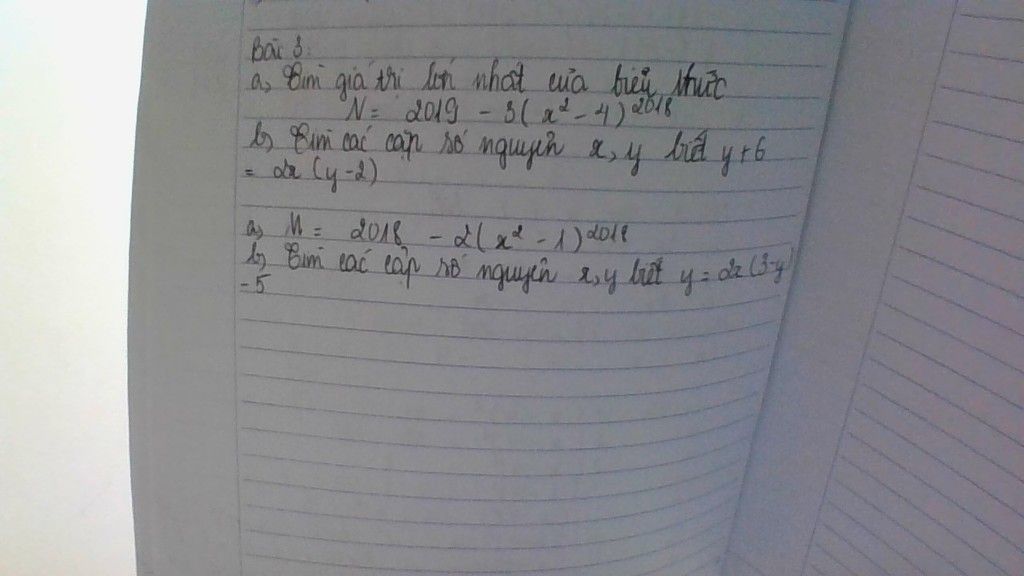 Bài 3:
a, Tìm giá trị lớn nhất của biểu thức
N = 2019 - 3(x² - 4)²⁰¹⁸
b, Tìm các cặp số nguyên x, y biết y + 6
= 2x (y - 2)
a, M = 2018 - 2(x² - 1)²⁰¹⁸
b, Tìm các cặp số nguyên x, y biết y = 2x (3-y)
- 5